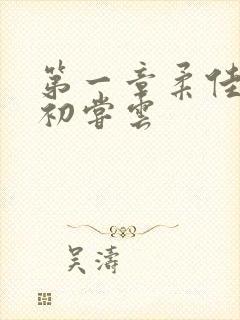 第一章柔佳
初尝雲
吴濤